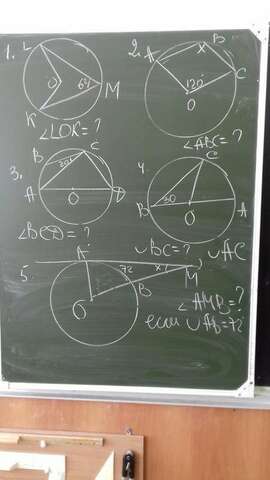 1.
L
O
62°
M
K
∠LOK = ?
2.
A
x
B
C
120°
O
∠ABC = ?
3.
B
C
30°
A
O
D
∠BCD = ?
4.
C
B
30
O
A
∪BC = ? ∪AC
5.
A
72
x
M
B
O
∠AMB = ?
если ∪AB = 72